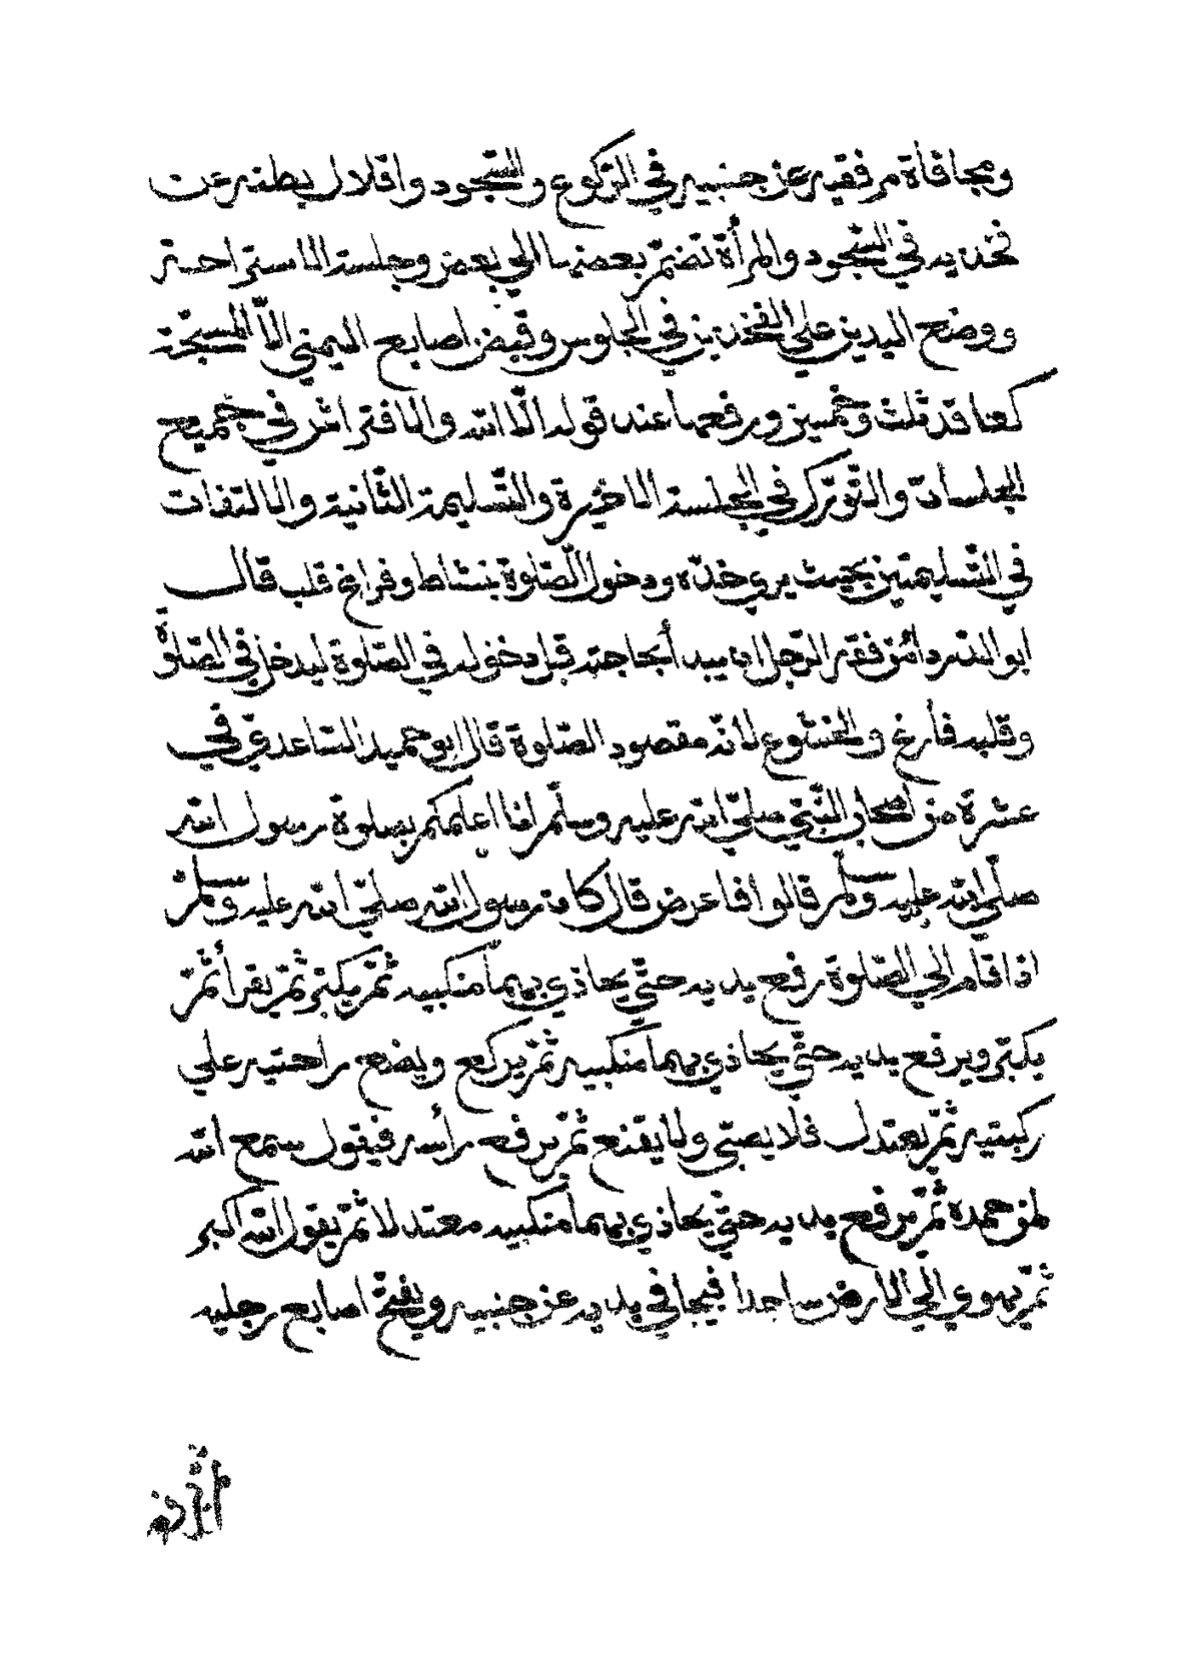 ومجافاة مرفقيه عن جنبيه في الركوع والسّجود واقلال بطنه عن
فخذيه في السّجود والمرأة تضمّ بعضها الي بعض وجلسة الاستراحة
ووضع اليدين علي الفخذين في الجلوس وقبض اصابع اليمني الاّ المسبّحة
كعاقد ثلث وخمسين ورفعها عند قوله الّا الله والافتراش في جميع
الجلسات والتّورّك في الجلسة الاخيرة والتّسليمة الثّانية والالتفات
في التّسليمتين بحيث يري خدّه ودخول الصّلوة بنشاط وفراغ قلب قال
ابو الدّرداء من فقه الرّجل ان يبدأ بحاجته قبل دخوله في الصّلوة ليدخل في الصّلوة
وقلبه فارغ والخشوع لانّه مقصود الصّلوة قال ابو حميد السّاعديّ في
عشرة من اصحاب النّبيّ صلّي الله عليه وسلّم انا اعلمكم بصلوة رسول الله
صلّي الله عليه وسلم قالوا فاعرض قال كان رسول الله صلّي الله عليه وسلم
اذا قام الي الصّلوة رفع يديه حتّي يحاذي بهما منكبيه ثمّ يكبّر ثمّ يقرأ ثمّ
يكبّر ويرفع يديه حتّي يحاذي بهما منكبيه ثمّ يركع ويضع راحتيه علي
ركبتيه ثمّ يعتدل فلا يصبّي ولا يقنع ثمّ يرفع رأسه فيقول سمع الله
لمن حمده ثمّ يرفع يديه حتّي يحاذي بهما منكبيه معتدلا ثمّ يقول الله اكبر
ثمّ يهوي الي الارض ساجدا فيجافي يديه عن جنبيه ويفتح اصابع رجليه